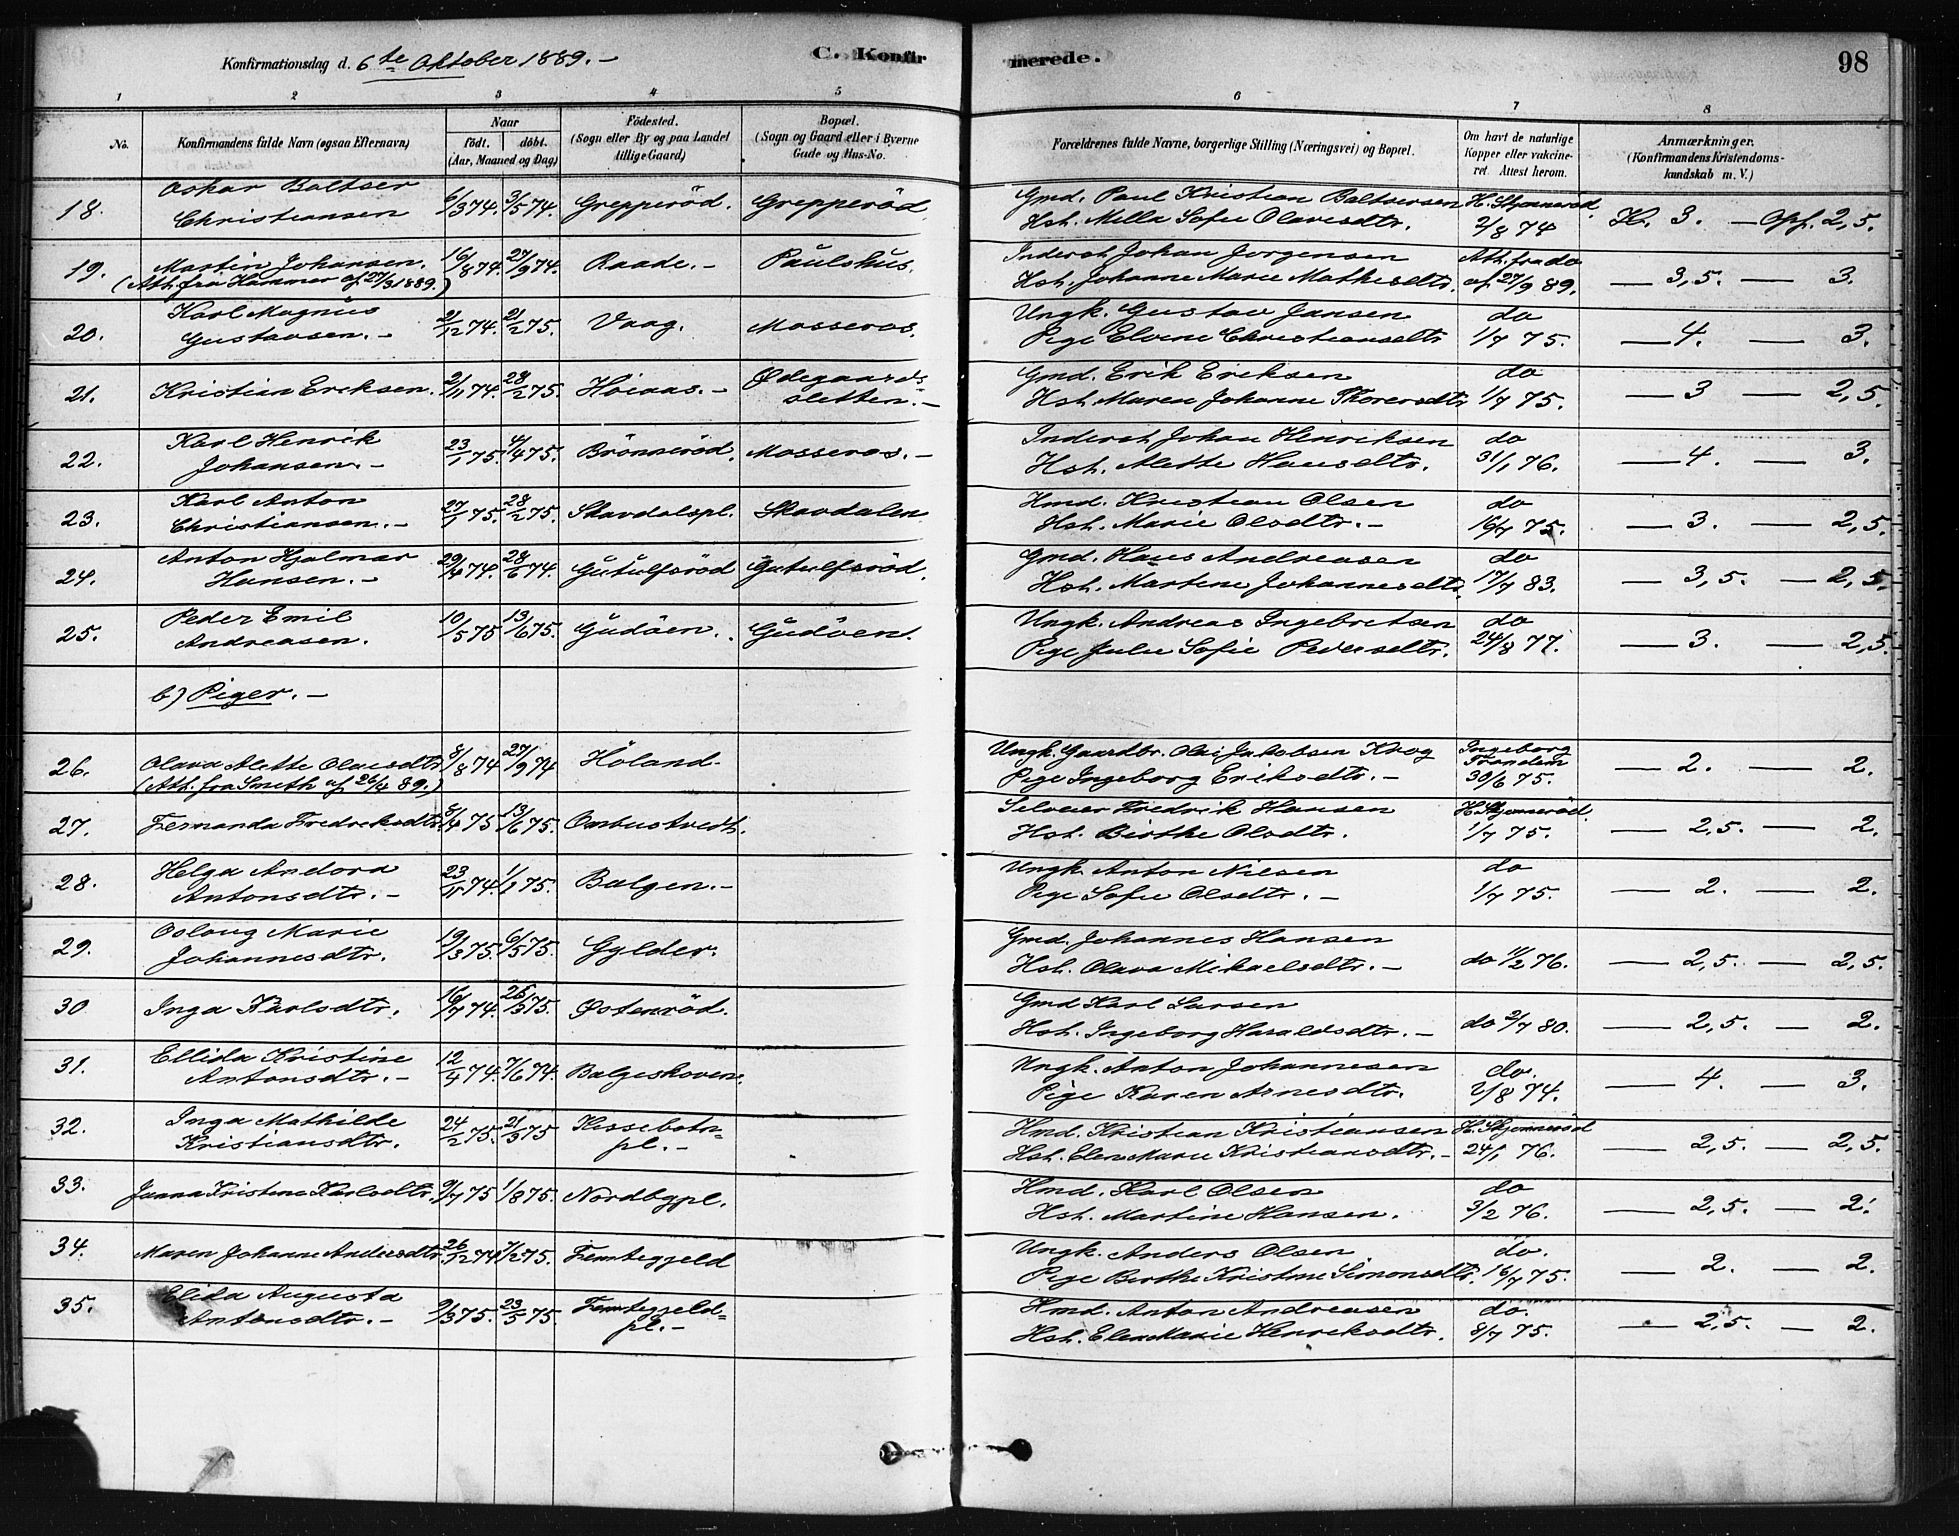 Konfirmationsdag d. 6te Oktober 1889. –
C. Konfirmerede.
98
1 2 3 4 5 6 7 8
No.
Konfirmandens fulde Navn (ogsaa Efternavn)
Naar
födt. döbt.
(Aar, Maaned og Dag)
Födested.
(Sogn eller By og paa Landet
tillige Gaard)
Bopæl.
(Sogn og Gaard eller i Byerne
Gade og Hus-No.
Forældrenes fulde Navne, borgerlige Stilling (Næringsvei) og Bopæl.
Om havt de naturlige
Kopper eller vakcine-
ret. Attest herom.
Anmærkninger.
(Konfirmandens Kristendoms-
kundskab m. V.)
18. Oskar Baltser
Christiansen 6/3 74. 3/5 74. Grepperöd. Grepperöd.
Gmd. Paul Kristian Baltsersen
Hst. Mella Sofie Olavesdtr. H. Skjennerød. 2/8 74 Kr. 3. – Opf. 2,5.
19. Martin Johansen.
(Ath. fra Hammer af 27/3 1889.) 16/8 74. 27/9 74. Raade. – Paulshus.
Inderst Johan Jorgensen
Hst. Johanne Marie Mathisdtr. Ath. fra do af 27/9 89. — 3,5. — 3.
20. Karl Magnus
Gustavsen. – 21/12 74. 21/2 75. Vaag. Mosseros.
Ungk. Gustav Jansen
Pige Elvine Christiansdtr do 1/7 75. — 4. — 3.
21. Kristian Eriksen. 2/11 74. 28/2 75. Höiaas. – Ødegaards-
sletten. –
Gmd. Erik Eriksen
Hst. Maren Johanne Thorersdtr do 1/7 75. — 3 — 2,5.
22. Karl Henrik
Johansen. – 23/1 75. 4/4 75. Brönneröd. Mosseros. –
Inderst Johan Henriksen
Hst. Alette Hansdtr. do 31/1 76. — 4. — 3.
23. Karl Anton
Christiansen. – 27/1 75. 28/2 75. Skavdalspl. Skavdalen
Hmd. Kristian Olsen
Hst. Marie Olsdtr. – do 16/7 75. — 3. — 2,5.
24. Anton Hjalmar
Hansen. – 29/4 74. 28/6 74. Gutulfsröd Gutulfsröd.
Gmd. Hans Andreasen
Hst. Martine Johannesdtr. do 17/7 83. — 3,5. — 2,5.
25. Peder Emil
Andreasen. 10/5 75 13/6 75. Gudöen. Gudöen.
Ungk. Andreas Ingebretsen
Pige Julie Sofie Pedersdtr. do 24/8 77. — 3. — 2,5.
b) Piger. –
26. Olava Alette Olausdtr
(Ath. fra Smith af 26/4 89.) 8/8 74 27/9 74 Höland.
Ungk. Gaardbr. Olai Jakobsen Krog
Pige Ingeborg Eriksdtr. – Ingeborg Trondem 30/6 75. — 2. — 2.
27. Fernanda Fredriksdtr. 8/4 75 13/6 75. Ombustvedt.
Selveier Fredrik Hansen
Hst. Birthe Olsdtr. H. Skjennerød. 1/7 75. — 2,5. — 2.
28. Helga Andora
Antonsdtr. – 23/11 74. 1/1 75. Balgen. –
Ungk. Anton Nilsen
Pige Sofie Olsdtr. – do 1/7 75. — 2. — 2.
29. Oslaug Marie
Johannesdtr. 19/3 75. 6/5 75. Gylder.
Gmd. Johannes Hansen
Hst. Olava Mikaelsdtr. – do 11/2 76. — 2,5. — 2,5.
30 Inga Karlsdtr. 16/7 74. 26/3 75. Østenröd.
Gmd Karl Larsen
Hst. Ingeborg Haraldsdtr. – do 2/7 80. — 2,5. — 2.
31. Ellida Kristine
Antonsdtr. – 12/4 74. 7/6 74. Balgeskoven.
Ungk. Anton Johannesen
Pige Karen Arnesdtr. do. 2/8 74. — 4. — 3.
32. Inga Mathilde
Kristiansdtr. 24/2 75. 21/3 75 Kissebotn-
pl. –
Hmd. Kristian Kristiansen
Hst. Elen Marie Kristiansdtr. – H. Skjennerød 24/1 76. — 2,5. — 2,5.
33. Janna Kristine Karlsdtr. 9/7 75 1/8 75. Nordbypl.
Hmd. Karl Olsen
Hst. Martine Hansen. do 3/2 76. — 2,5. — 2.
34. Maren Johanne Andersdtr. 26/12 74 7/2 75. Femtegjeld
Ungk. Anders Olsen
Pige Berthe Kristine Simonsdtr. do. 16/7 75. — 2. — 2.
35. Elida Augusta
Antonsdtr. – 9/3 75. 23/5 75. Femtegjeld-
pl. –
Hmd. Anton Andreasen
Hst. Elen Marie Henriksdtr. do. 8/7 75. — 2,5. — 2.